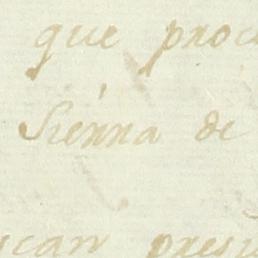 que proc
Sienna de
ucan presu